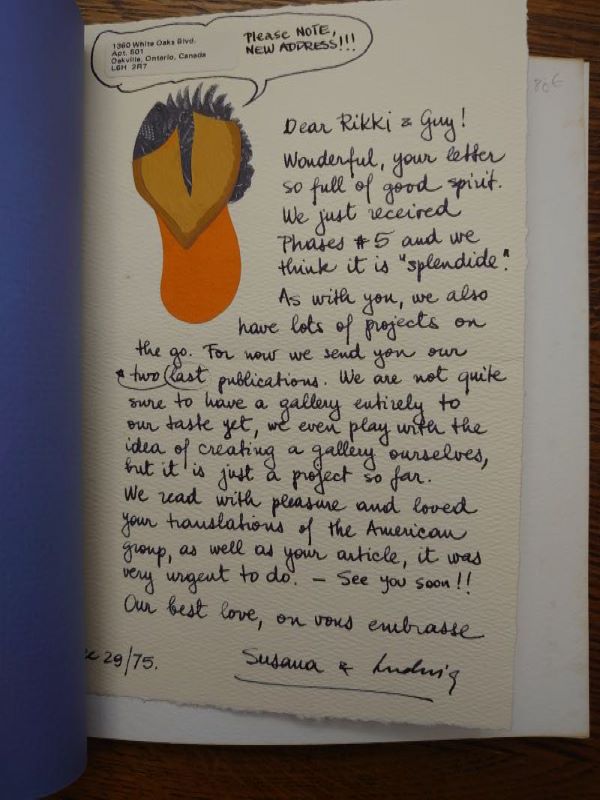 1360 White Oaks Blvd.
Apt. 501
Oakville, Ontario, Canada
L6H 2R7
Please NOTE,
NEW ADDRESS!!!
Dear Rikki & Guy!
Wonderful, your letter
so full of good spirit.
We just received
Phases #5 and we
think it is "splendide".
As with you, we also
have lots of projects on
the go. For now we send you our
two last publications. We are not quite
sure to have a gallery entirely to
our taste yet, we even play with the
idea of creating a gallery ourselves,
but it is just a project so far.
We read with pleasure and loved
your translations of the American
group, as well as your article, it was
very urgent to do. — See you soon!!
Our best love, on vous embrasse
29/75.
Susana & Ludwig